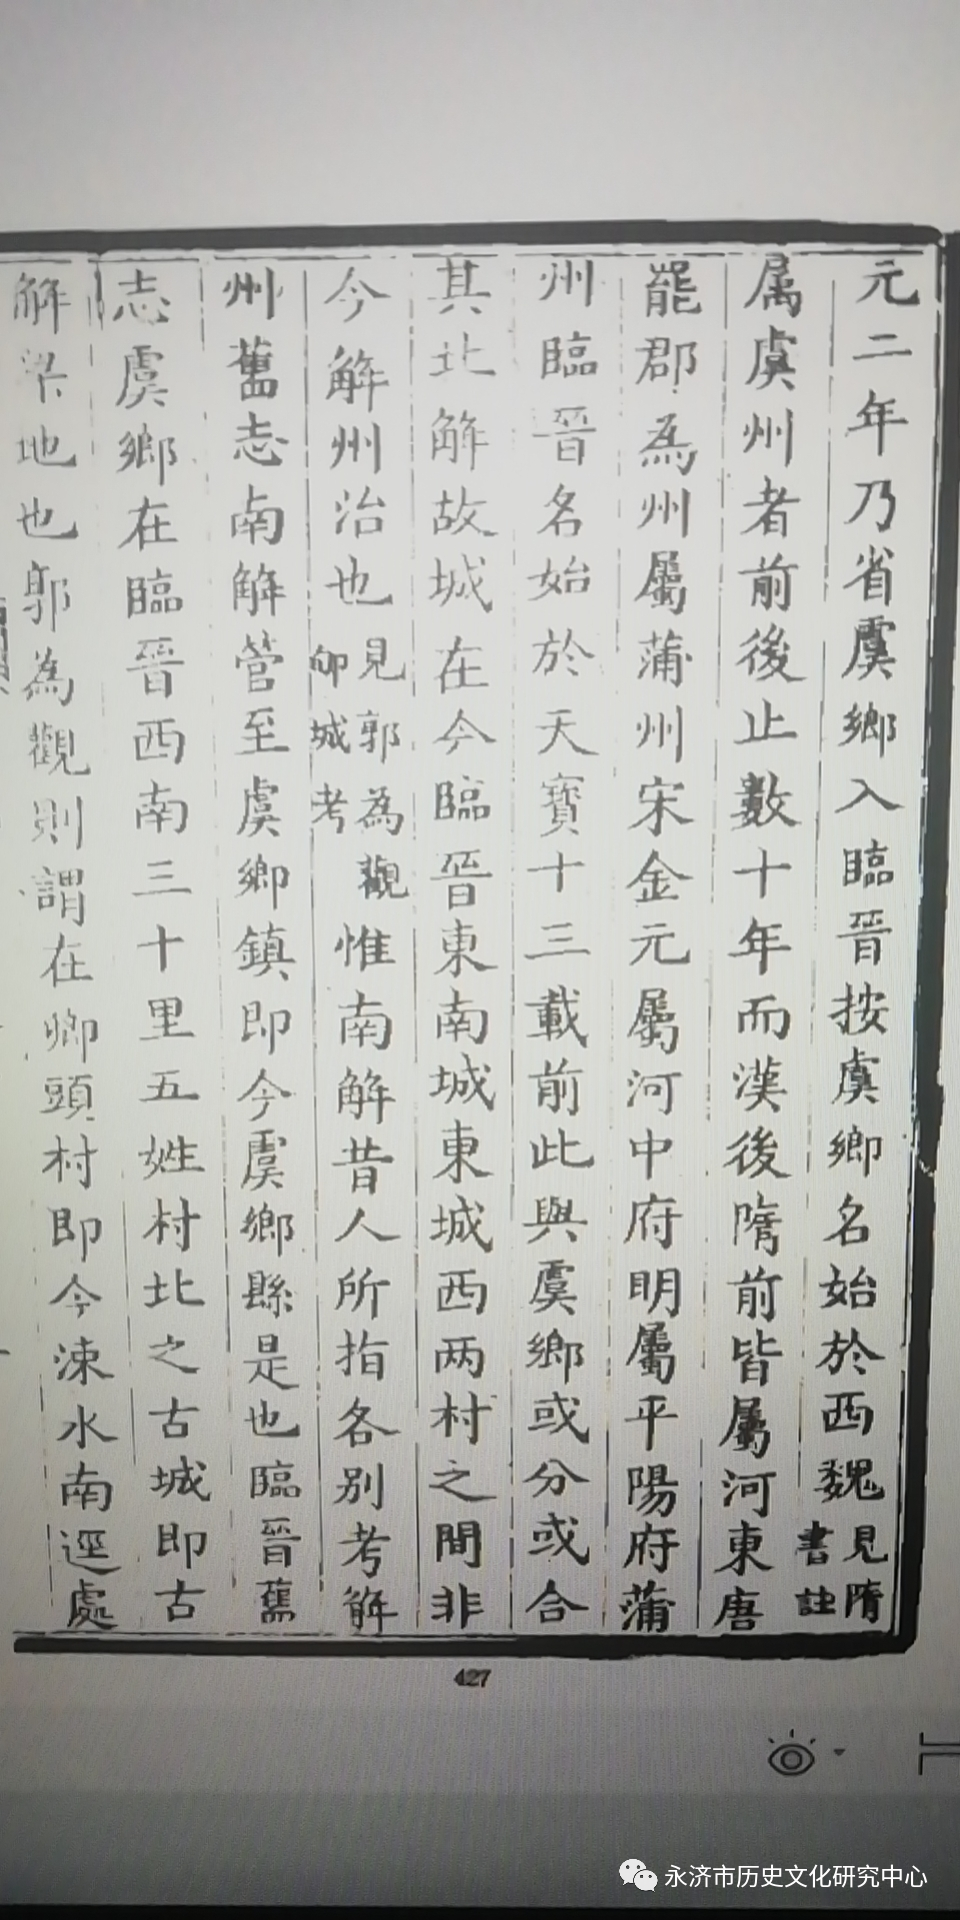 元二年乃省虞鄉入臨晉按虞鄉名始於西魏見隋書註
属虞州者前後止數十年而漢後隋前皆屬河東唐
罷郡為州屬蒲州宋金元屬河中府明屬平陽府蒲
州臨晉名始於天寶十三載前此與虞鄉或分或合
其北解故城在今臨晉東南城東城西两村之間非
今解州治也見郭為觀郇城考惟南解昔人所指各别考解
州舊志南解管至虞鄉鎮即今虞鄉縣是也臨晉舊
志虞鄉在臨晉西南三十里五姓村北之古城即古
解梁地也郭為觀則謂在卿頭村即今涑水南逕處
427
永济市历史文化研究中心